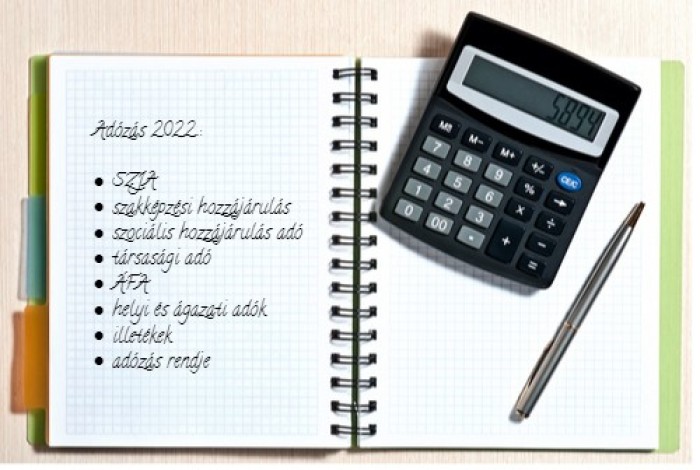 Adózás 2022:
• SZJA
• szakképzési hozzájárulás
• szociális hozzájárulás adó
• társasági adó
• ÁFA
• helyi és ágazati adók
• illetékek
• adózás rendje
5894
MS M− M+ +/− CE/C
7 8 9 %
4 5 6 × ÷
1 2 3 + −
0 00 . =